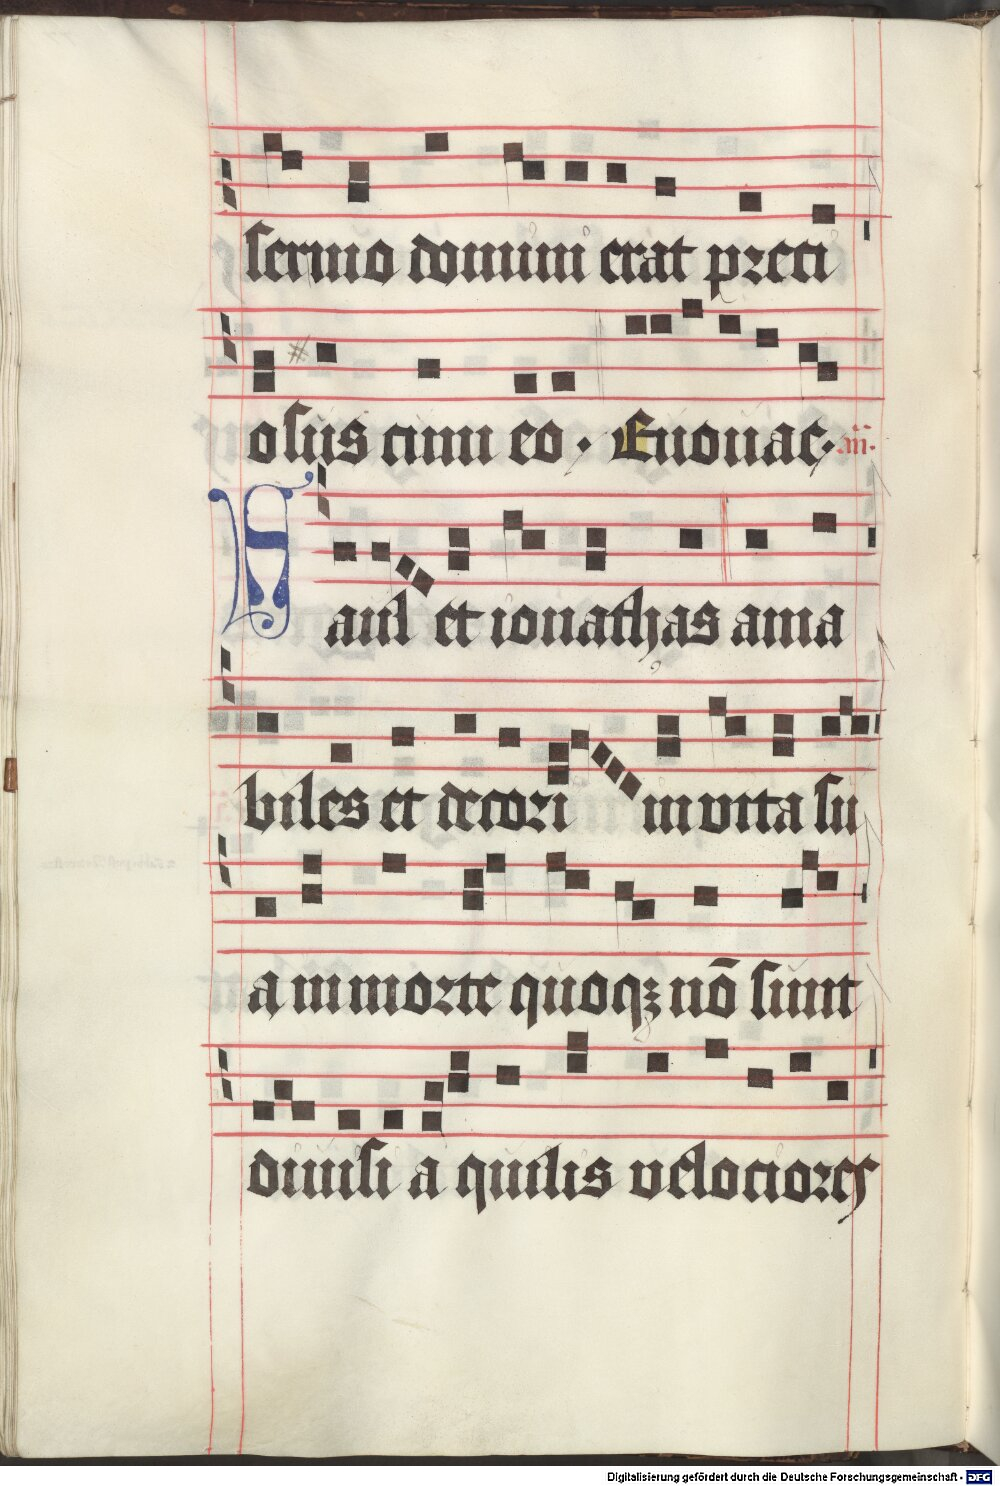 sermo domini erat preci
osus cum eo · Euouae · iii ·
Saul et ionathas ama
biles et decori in vita su
a in morte quoqꝫ nō sunt
diuisi a quilis velociores
Digitalisierung gefördert durch die Deutsche Forschungsgemeinschaft - DFG